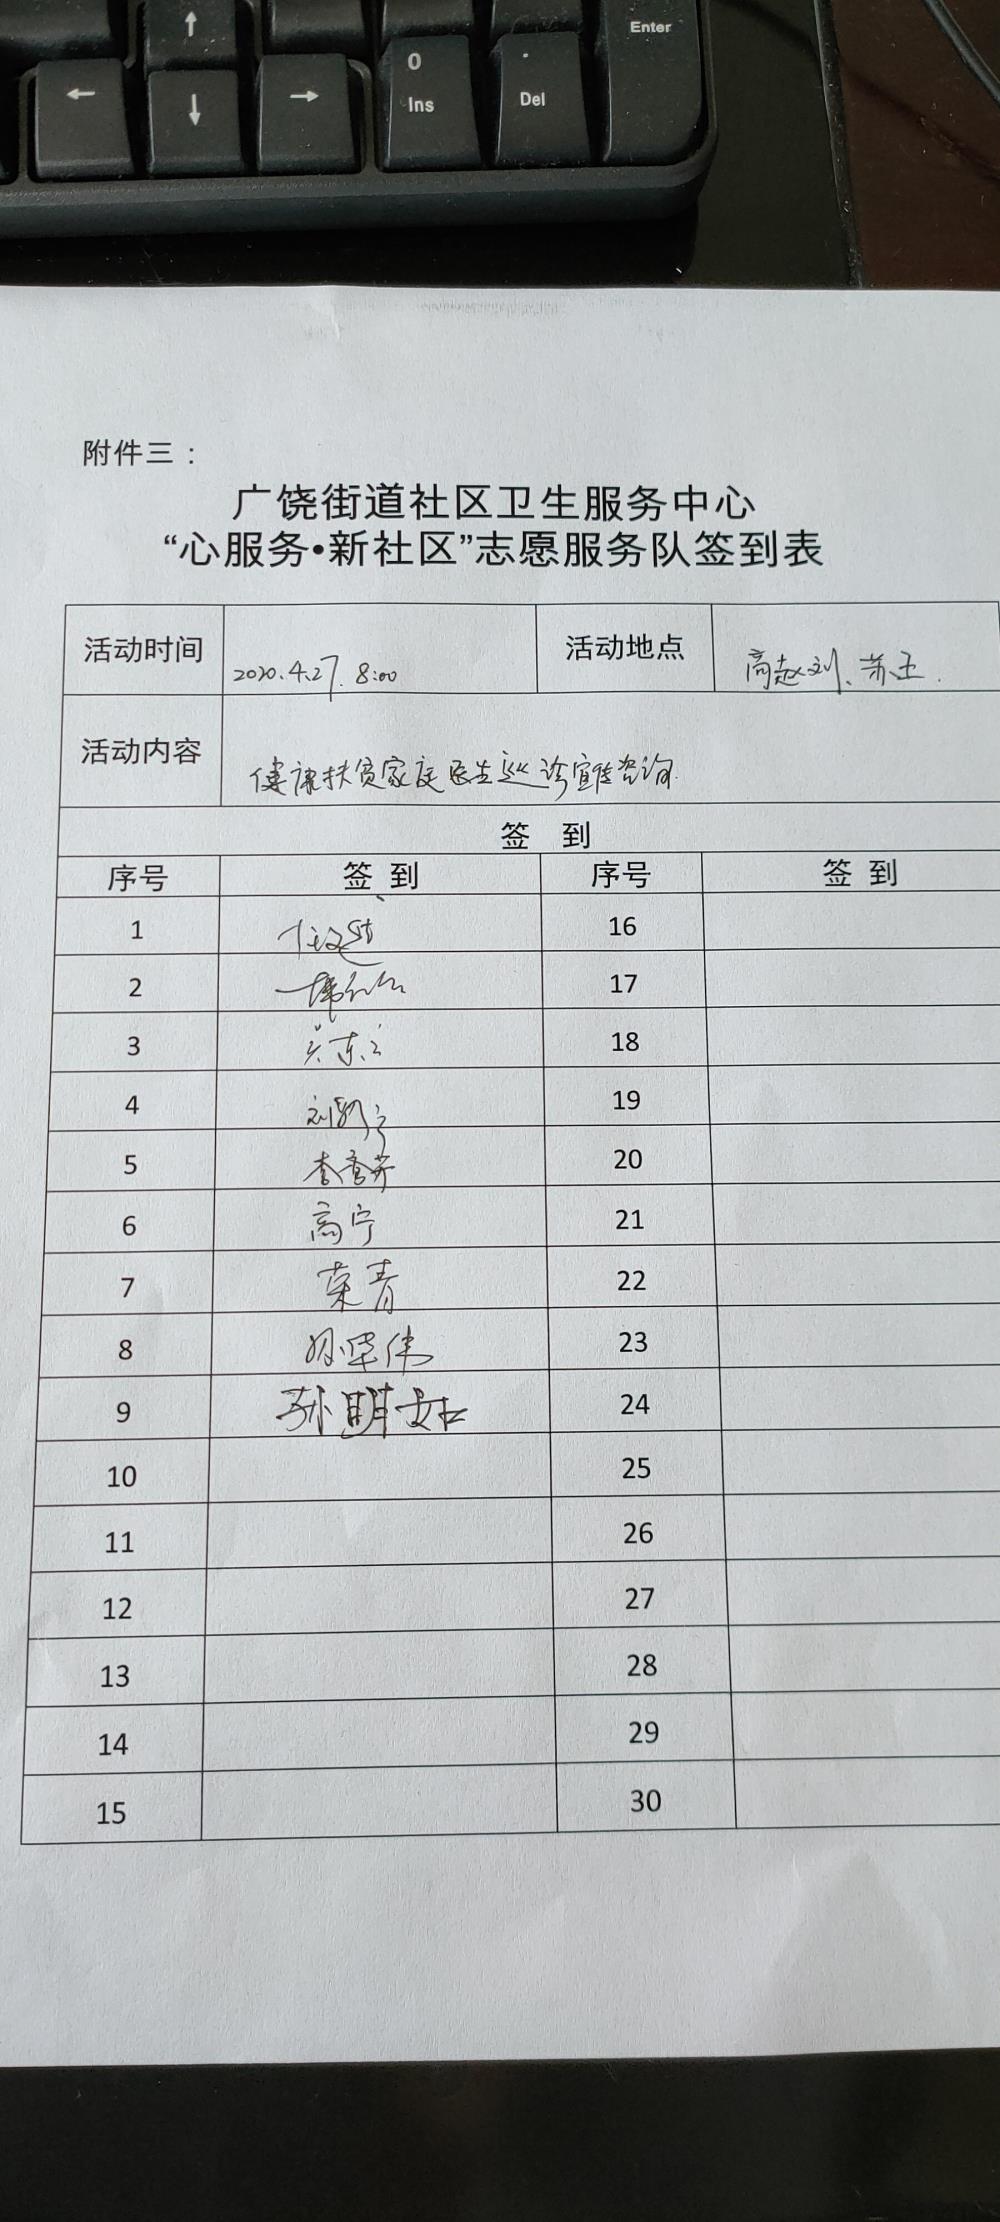 Enter
0
Ins
Del
附件三：
广饶街道社区卫生服务中心
“心服务•新社区”志愿服务队签到表
活动时间 2020.4.27. 8:00 活动地点 高赵刘、苏王.
活动内容 健康扶贫家庭医生巡诊宣传咨询.
签 到
序号 签 到 序号 签 到
1 16
2 17
3 18
4 19
5 李香芹 20
6 高宁 21
7 荣青 22
8 23
9 孙明如 24
10 25
11 26
12 27
13 28
14 29
15 30